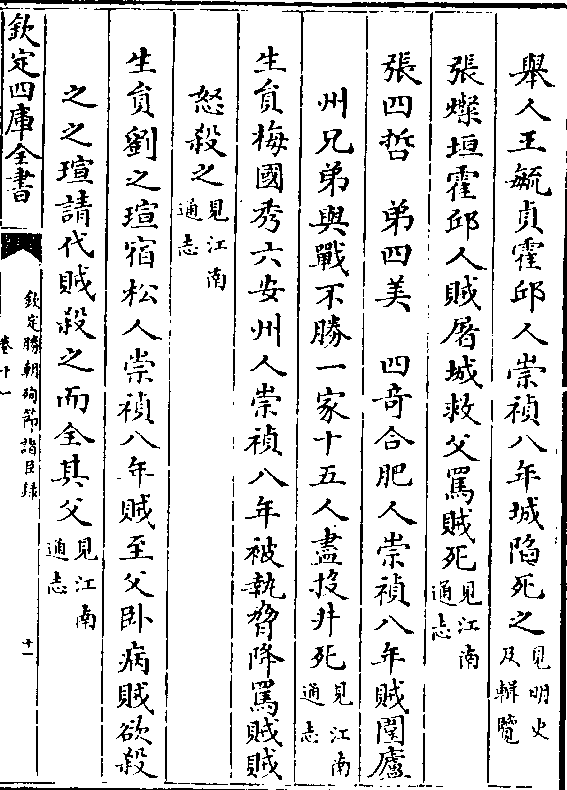 舉人王毓貞霍邱人崇禎八年城陷死之見明史及輯覽
張燦垣霍邱人賊屠城救父罵賊死見江南通志
張四哲　弟四美　四奇合肥人崇禎八年賊圍廬
州兄弟與戰不勝一家十五人盡投井死見江南通志
生員梅國秀六安州人崇禎八年被執脅降罵賊賊
怒殺之見江南通志
生員劉之瑄宿松人崇禎八年賊至父卧病賊欲殺
之之瑄請代賊殺之而全其父見江南通志
欽定四庫全書
欽定勝朝殉節諸臣録
卷十一
十一